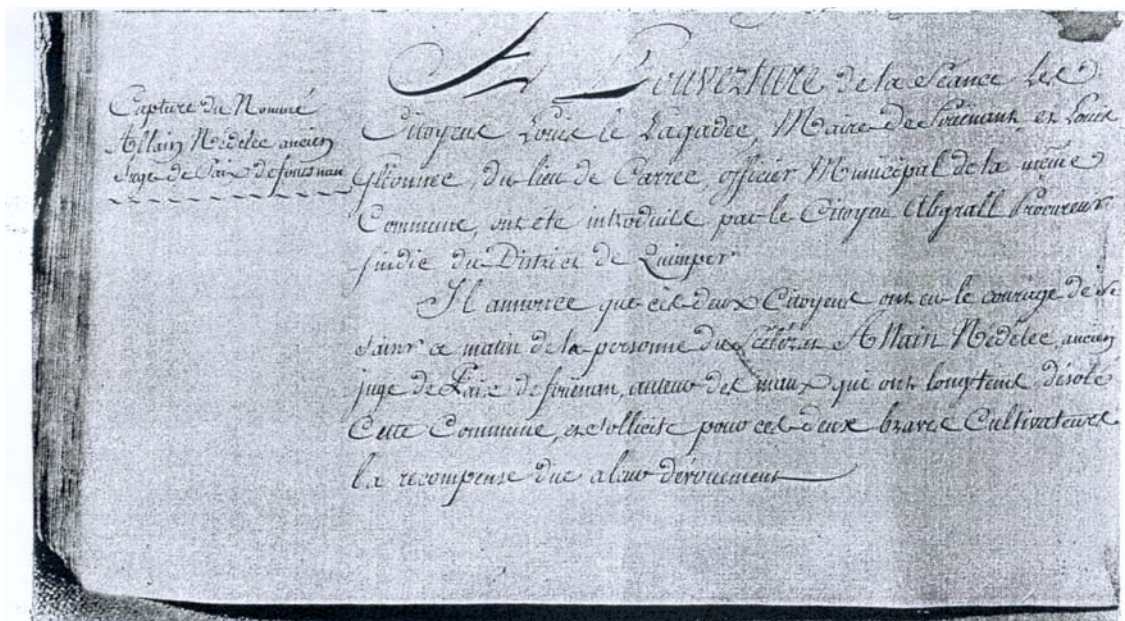 Capture du Nommé
Allain Nedelec ancien
Juge de Paix de fouesnan
A L'ouverture de la séance les
Citoyens Louis le Lagadec, Maire de fouenant et Louis
du lieu de Carree, officier Municipal de la même
Commune, ont été introduits par le Citoyen Abgrall Procureur
sindic du District de Quimper
Il annonce que ces deux Citoyens ont eu le courage de se
saisir ce matin de la personne du scélérat Allain Nedelec, ancien
juge de Paix de fouenan, auteur des maux qui ont longtems désolé
Cette Commune, et sollicite pour ces deux braves Cultivateurs
la recompense due a leur dévouement